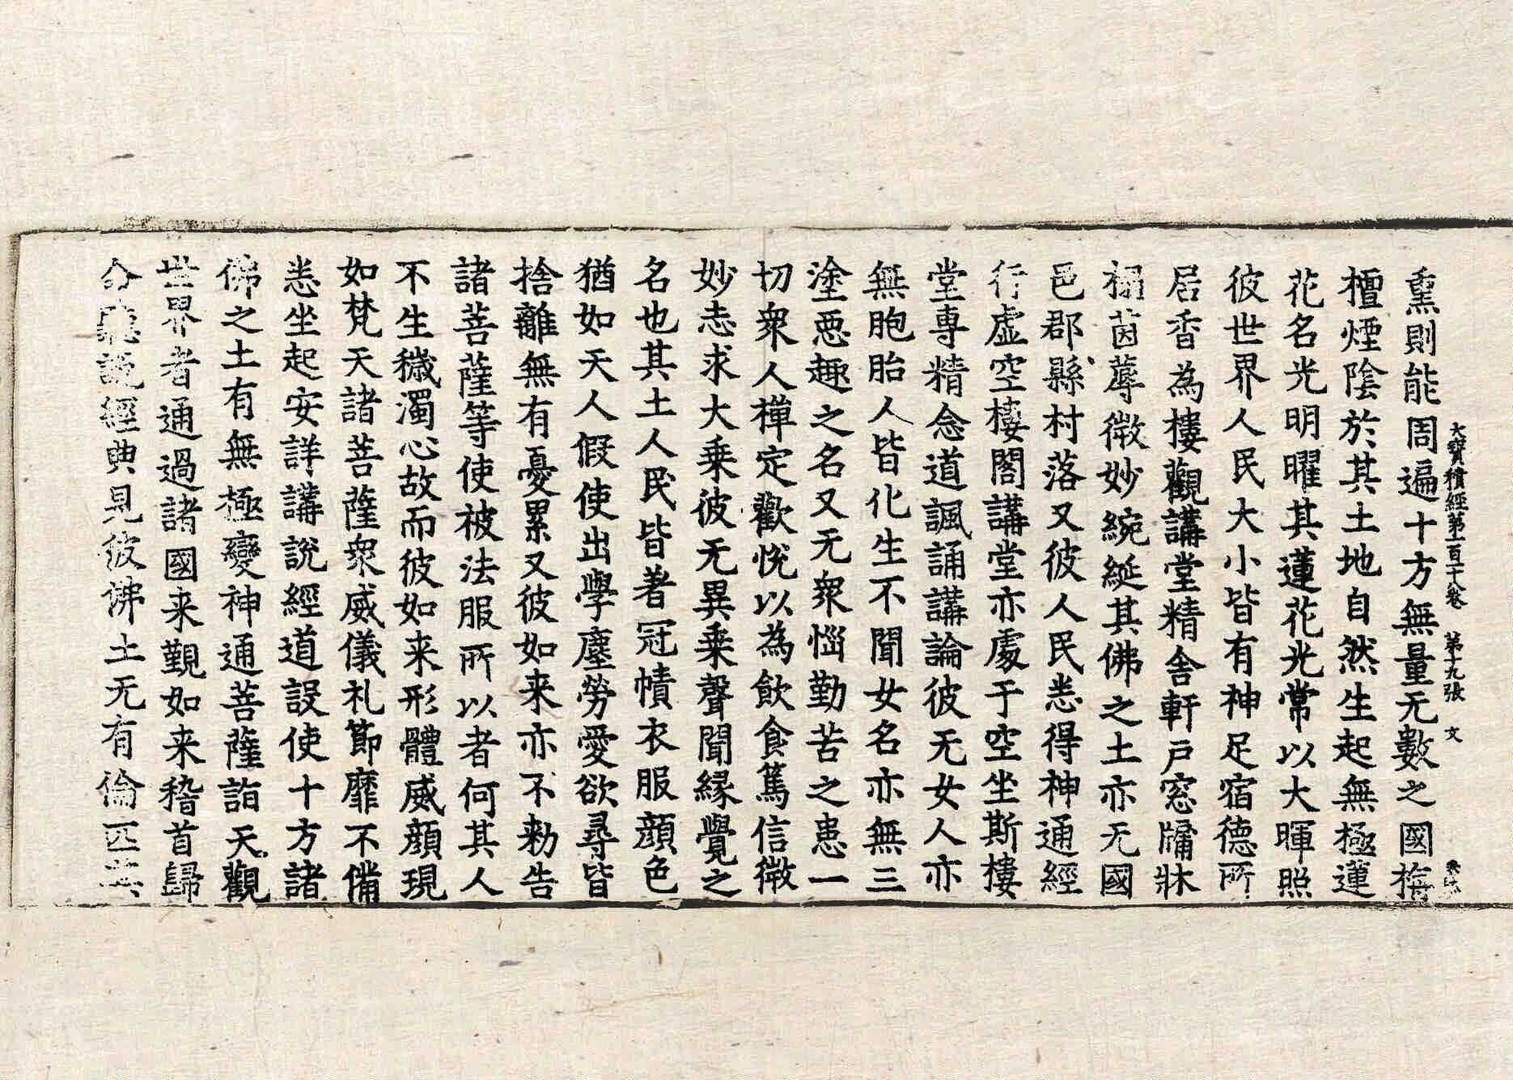 大寶積經第一百十卷 第十九張 文
熏則能周遍十方無量无數之國栴
檀煙陰於其土地自然生起無極蓮
花名光明曜其蓮花光常以大暉照
彼世界人民大小皆有神足宿德所
居香為樓觀講堂精舍軒戶窓牖牀
榻茵蓐微妙綩綖其佛之土亦无國
邑郡縣村落又彼人民悉得神通經
行虛空樓閣講堂亦處于空坐斯樓
堂專精念道諷誦講論彼无女人亦
無胞胎人皆化生不聞女名亦無三
塗惡趣之名又无衆惱勤苦之患一
切衆人禪定歡悅以為飲食篤信微
妙志求大乘彼无異乘聲聞緣覺之
名也其土人民皆著冠幘衣服顏色
猶如天人假使出學塵勞愛欲尋皆
捨離無有憂累又彼如来亦不勑告
諸菩薩等使被法服所以者何其人
不生穢濁心故而彼如来形體威顏現
如梵天諸菩薩衆威儀礼節靡不備
悉坐起安詳講說經道設使十方諸
佛之土有無極變神通菩薩詣天觀
世界者通過諸國来覲如来稽首歸
命聽說經典見彼佛土无有倫匹